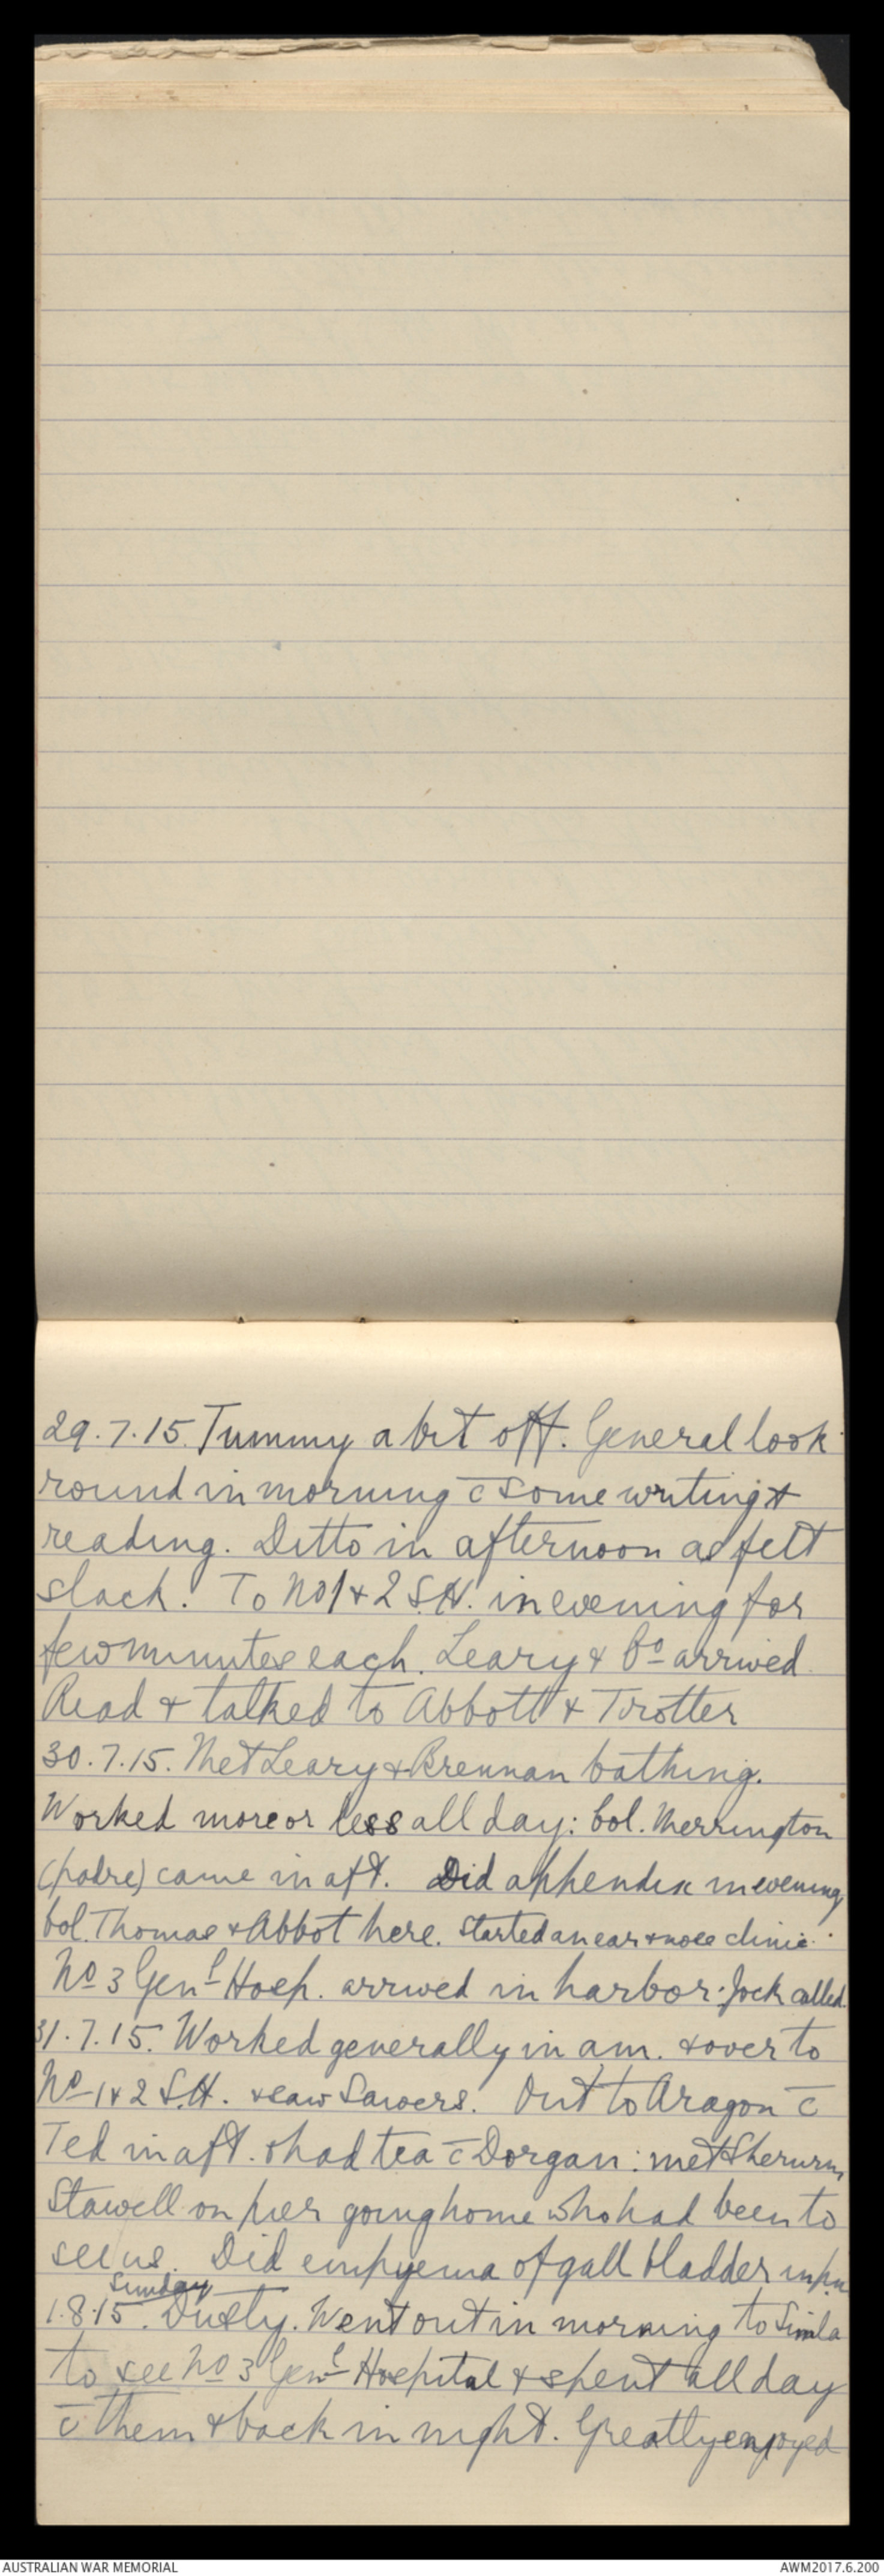 29.7.15. Tummy a bit off. General look
round in morning c̄ some writing &
reading. Ditto in afternoon as felt
slack. To No 1 & 2 S.H. in evening for
few minutes each. Leary & Co arrived.
Read & talked to Abbott & Trotter
30.7.15. Met Leary & Brennan bathing.
Worked more or less all day: Col. Merrington
(padre) came in aft. Did appendix in evening
Col. Thomas & Abbot here. Started an ear & nose clinic.
No 3 Genl Hosp. arrived in harbor. Jock called.
31.7.15. Worked generally in am. & over to
No 1 & 2 S.H. & saw Sawers. Out to Aragon c̄
Ted in aft. & had tea c̄ Dorgan: met
Stawell on pier going home who had been to
see us. Did empyema of gall bladder in p.m
Sunday
1.8.15. Dusty. Went out in morning to Simla
to see No 3 Genl Hospital & spent all day
c̄ them & back in night. Greatly enjoyed
AUSTRALIAN WAR MEMORIAL
AWM2017.6.200